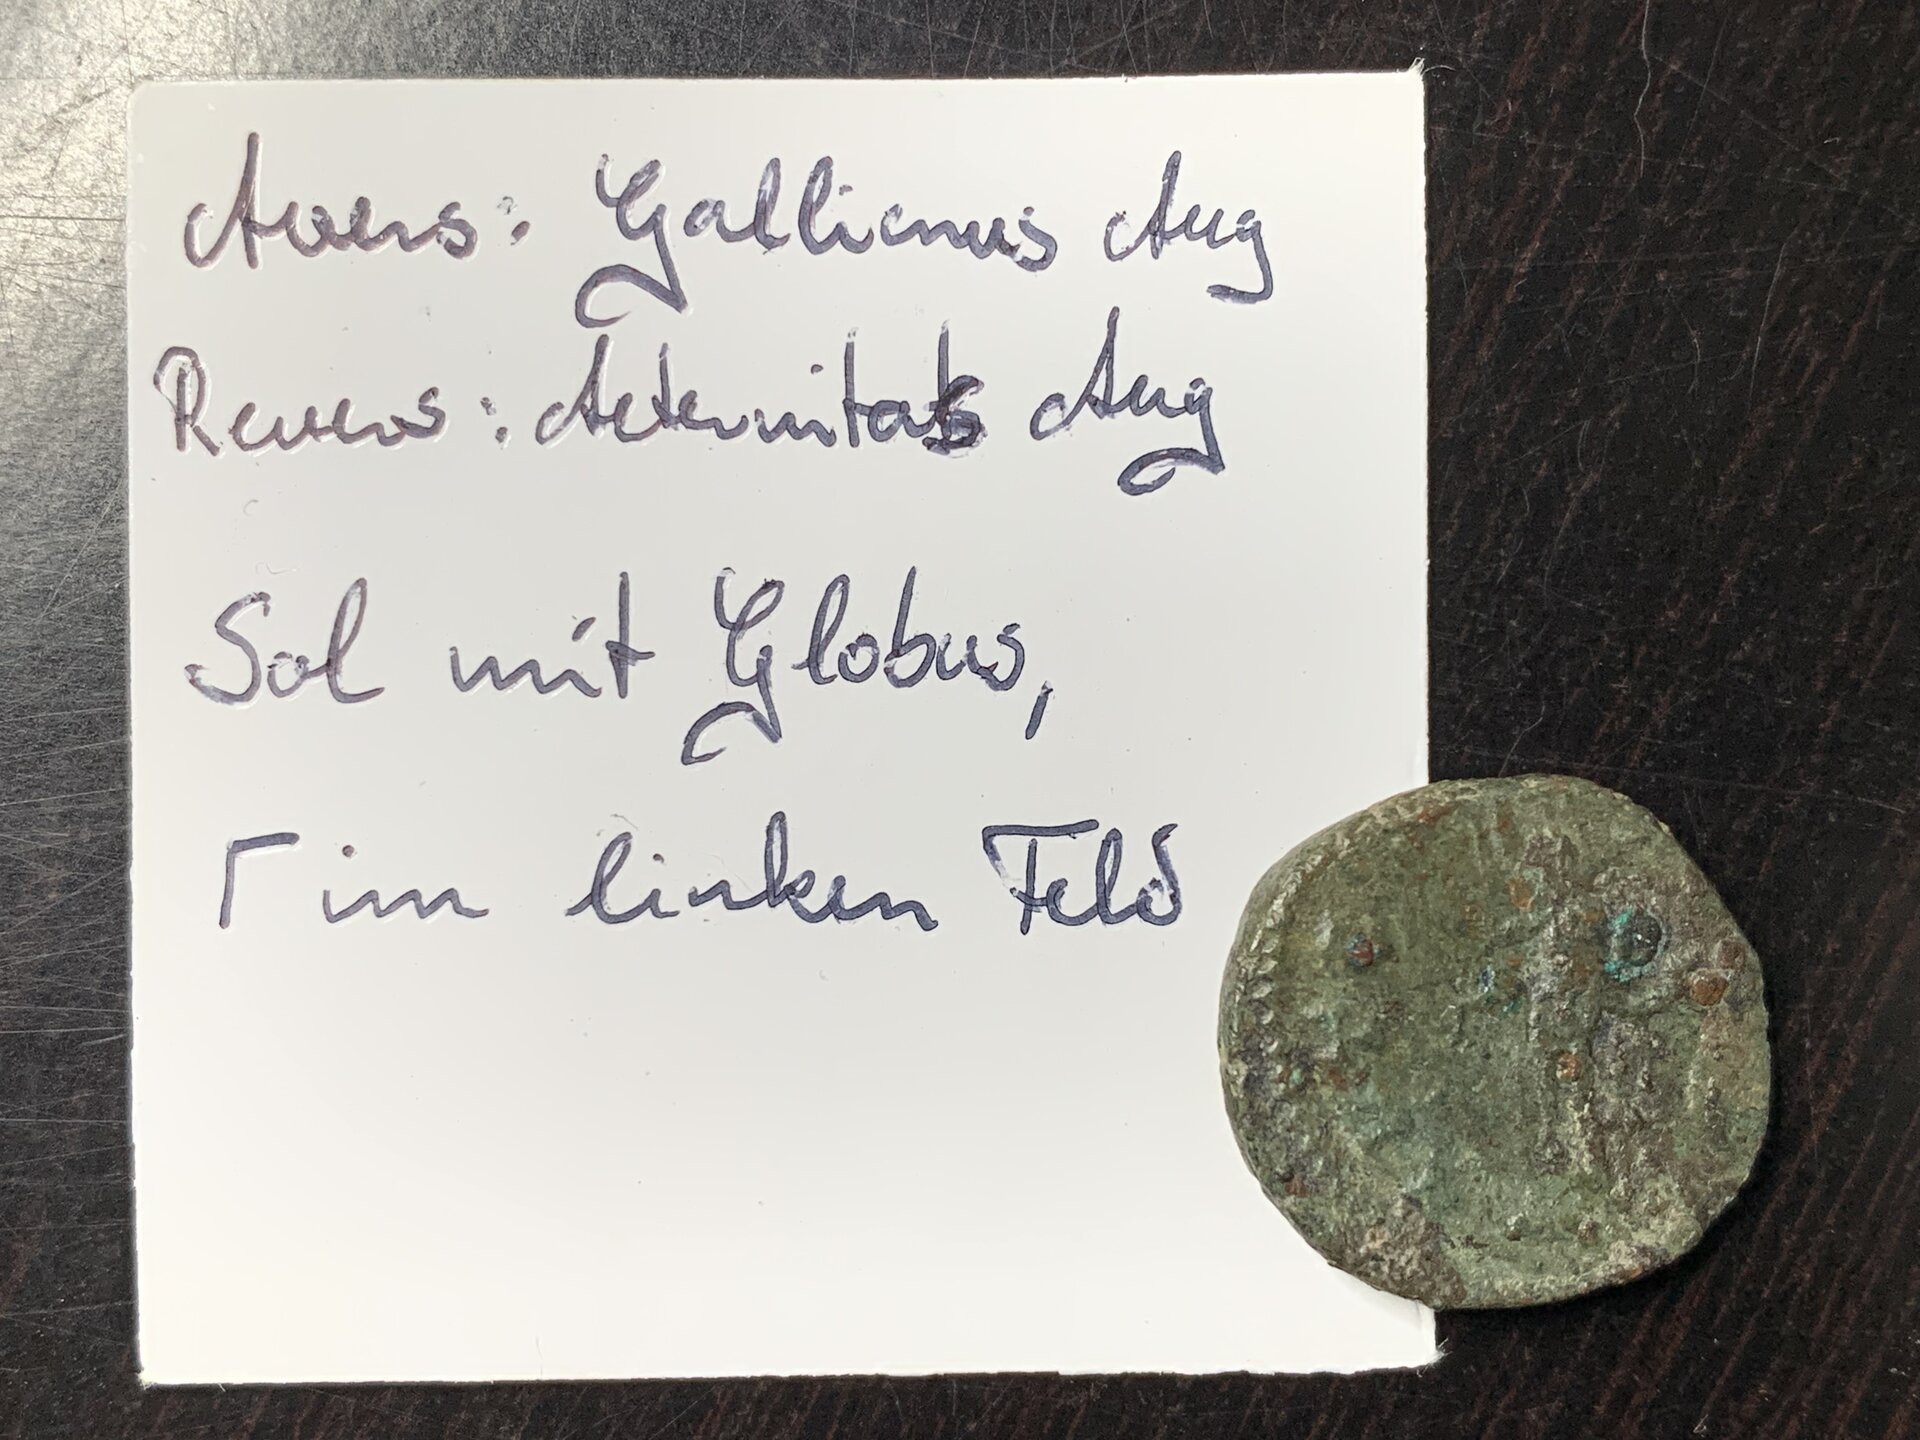 Avers: Gallienus Aug
Revers: Aeternitas Aug
Sol mit Globus,
Γ im linken Feld